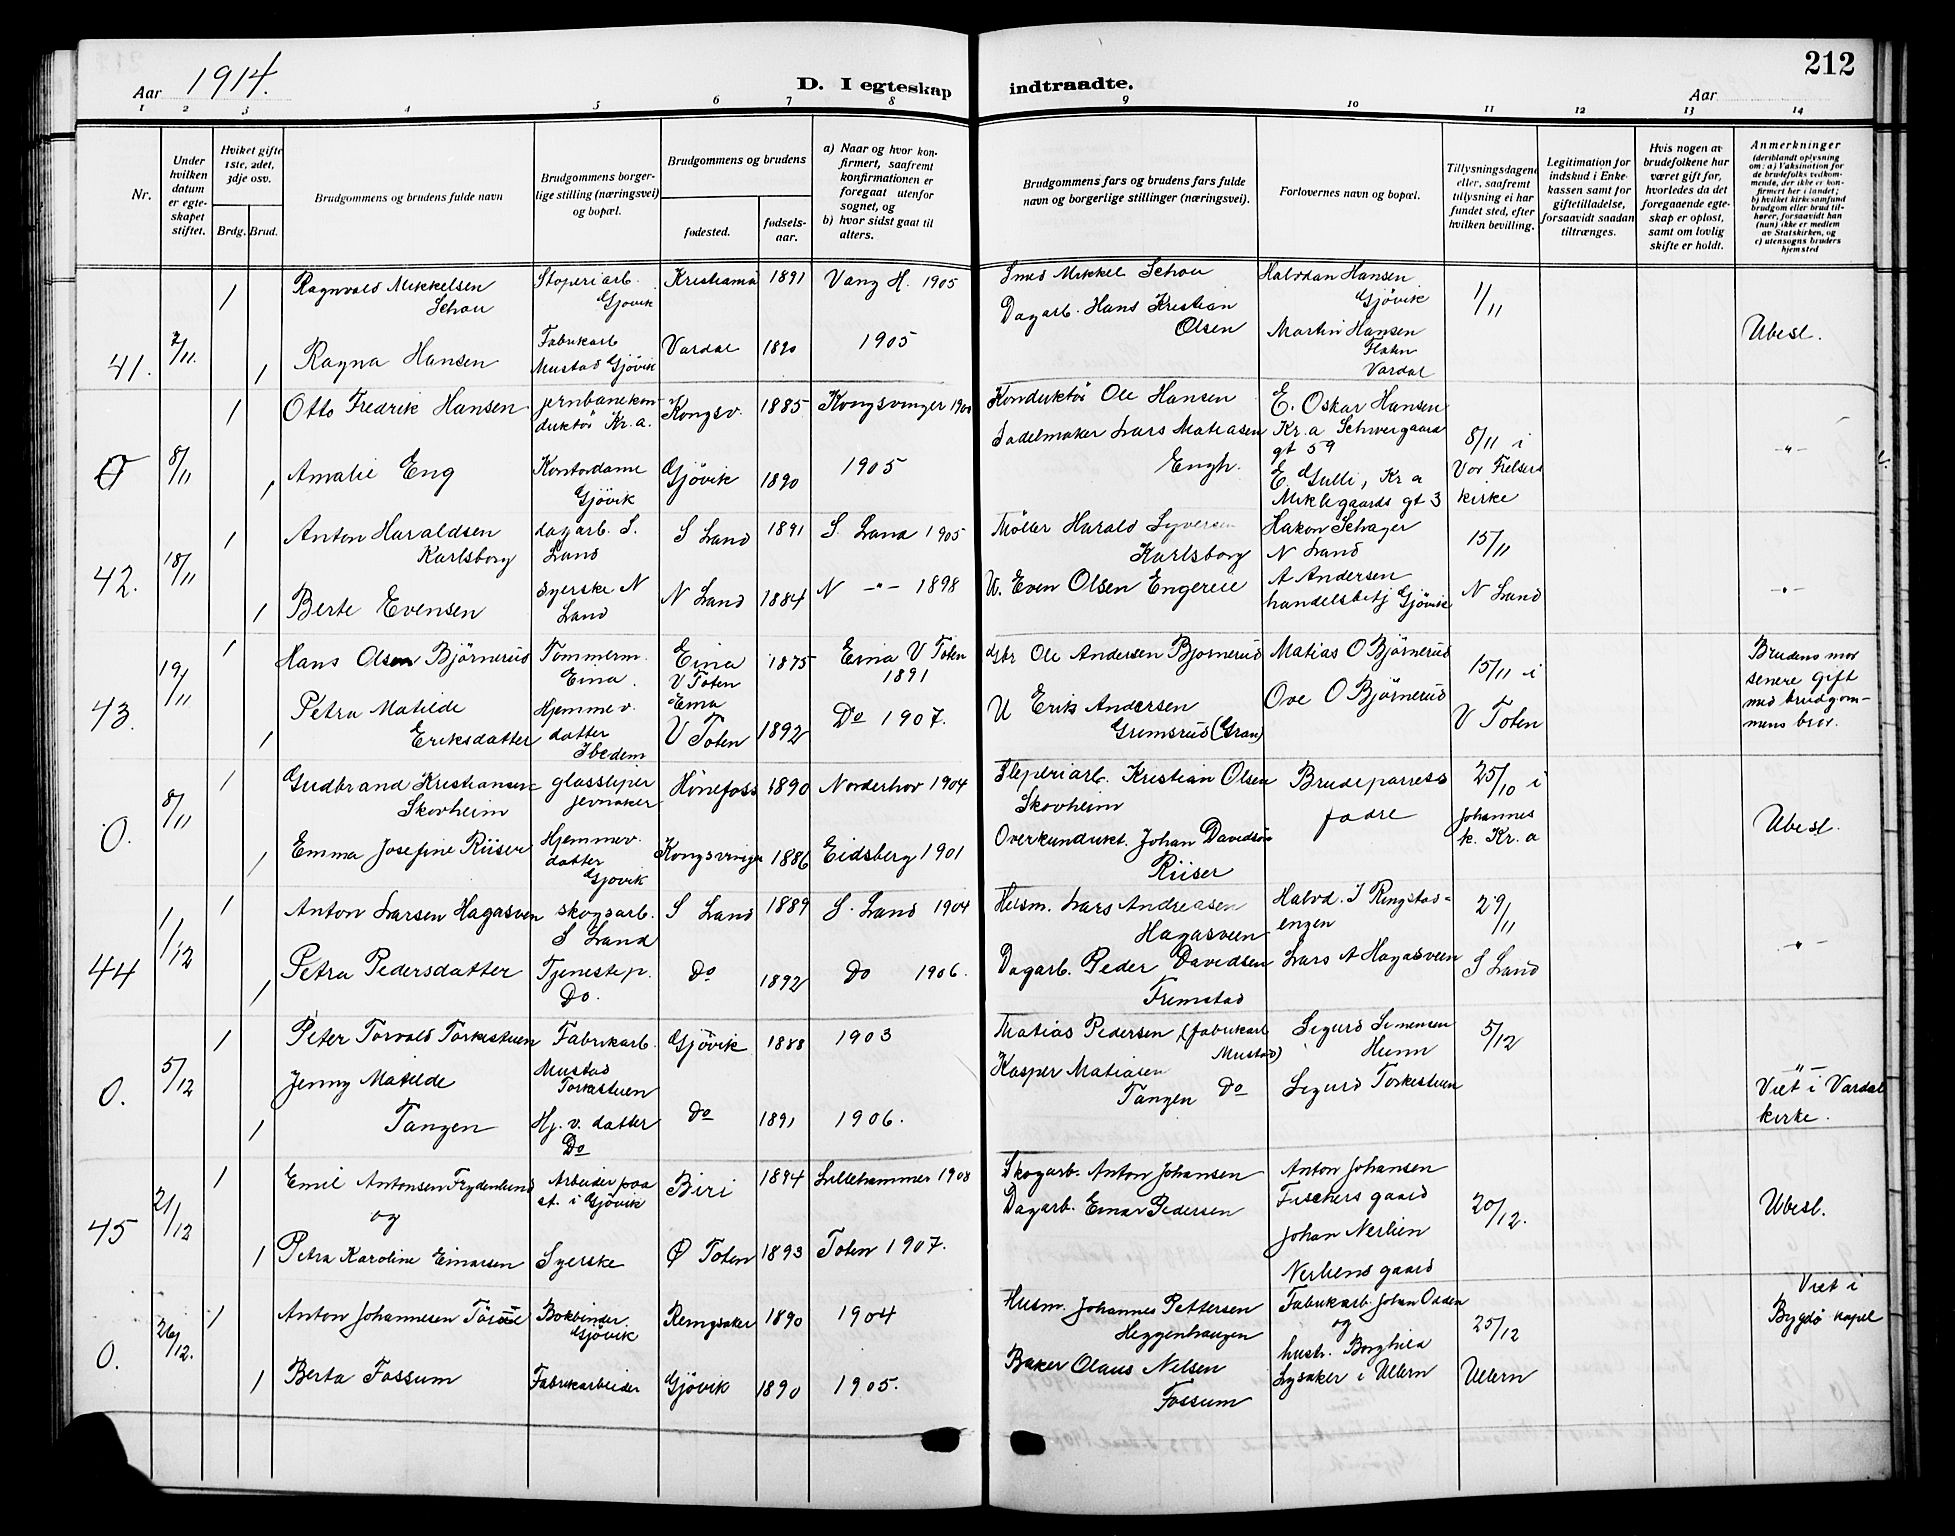 212
Aar 1914.
D. I egteskap indtraadte.
Aar
1 2 3 4 5 6 7 8 9 10 11 12 13 14
Nr.
Under hvilken datum er egteskapet stiftet.
Hviket gifte 1ste, 2det, 3dje osv.
Brdg. Brud.
Brudgommens og brudens fulde navn
Brudgommens borgerlige stilling (næringsvei) og bopæl.
Brudgommens og brudens
fødested.
fødselsaar.
a) Naar og hvor konfirmert, saafremt konfirmationen er foregaat utenfor sognet, og
b) hvor sidst gaat til alters.
Brudgommens fars og brudens fars fulde navn og borgerlige stillinger (næringsvei).
Forlovernes navn og bopæl.
Tillysningsdagene eller, saafremt tillysning ei har fundet sted, efter hvilken bevilling.
Legitimation for indskud i Enkekassen samt for giftetilladelse, forsaavidt saadan tiltrænges.
Hvis nogen av brudefolkene har været gift før, hvorledes da det foregaaende egteskap er opløst, samt om lovlig skifte er holdt.
Anmerkninger
(deriblandt oplysning om: a) Vaksination for de brudefolks vedkommende, der ikke er konfirmert her i landet; b) hvilket kirkesamfund brudgom eller brud tilhører, forsaavidt han (hun) ikke er medlem av Statskirken, og c) utensogns bruders hjemsted
41. 7/11.
1 Ragnvald Mikkelsen Schou
Støperiarb. Gjøvik
Kristiania 1891 Vang H. 1905
Smed Mikkel Schou
Halvdan Hansen Gjøvik
1/11
1 Ragna Hansen
Fabrikarb Mustad Gjøvik
Vardal 1890 1905
Dagarb. Hans Kristian Olsen
Martin Hansen Flaten Vardal
Ubesl.
0 8/11
1 Otto Fredrik Hansen
jernbanekonduktør Kr.a.
Kongsv. 1885 Kongsvinger 1900
Konduktør Ole Hansen
E. Oskar Hansen Kr.a Schweigaards gt 59
8/11 i Vor Frelsers kirke
1 Amalie Eng
Kontordame Gjøvik
Gjøvik 1890 1905
Sadelmaker Lars Matiasen Engh.
E. Gulli, Kr a Meklegaards gt 3
-"-
42. 18/11
1 Anton Haraldsen Karlsborg
dagarb. S. Land
S Land 1891 S. Land 1905
Møller Harald Syversen Karlsborg
Hakon Schager N Land
15/11
1 Berte Evensen
Syerske N Land
N Land 1884 N -"- 1898
U. Even Olsen Engereie
A Andersen handelsbetj Gjøvik
N Land
-"-
43. 19/11
1 Hans Olsen Bjørnerud
Tømmerm. Eina.
Eina V Toten 1875 Eina V Toten 1891
Gbr Ole Andersen Bjørnerud
Matias O Bjørnerud
15/11 i V Toten
1 Petra Matilde Eriksdatter
Hjemmev. datter Ibedem
Eina V Toten 1892 Do 1907.
U Erik Andersen Grimsrud (Gran)
Ove O Bjørnerud
Brudens mor senere gift med brudgommens bror.
0. 8/11
1 Gudbrand Kristiansen Skovheim
glassliper Jevnaker
Hønefoss 1890 Norderhov 1904
Sliperiarb. Kristian Olsen Skovheim
Brudeparrets fædre
25/10 i Johannes k. Kr.a
1 Emma Josefine Riiser
Hjemmev. datter Gjøvik
Kongsvinger 1886 Eidsberg 1901
Overkondukt. Johan Davidsøn Riiser
Ubesl.
44 1/12
1 Anton Larsen Hagasveen
skogsarb. S Land
S Land 1889 S. Land 1904
Husm. Lars Andreasen Hagasveen
Halvd. I Ringstadengen
29/11
1 Petra Pedersdatter
Tjenestep. Do.
Do 1892 Do 1906.
Dagarb. Peder Davidsen Fremstad
Lars A Hagasveen
S Land
-"-
0. 5/12
1 Peter Torvald Torkestuen
Fabrikarb. Mustad Torkestuen
Gjøvik 1888 1903
Matias Pedersen (fabrikarb Mustad)
Sigurd Simensen Hunn
5/12
1 Jenny Matilde Tangen
Hj. v. datter Do
Do 1891 1906.
Kasper Matiasen Tangen Do
Sigurd Torkestuen
-"-
Viet i Vardal kirke.
45 21/12
1 Emil Antonsen Frydenlund og
Arbeider paa st. i Gjøvik
Biri 1894 Lillehammer 1908
Skogarb. Anton Johansen
Anton Johansen Fischers gaard
20/12.
1 Petra Karoline Einarsen
Syerske
Ø Toten 1893 Toten 1907.
Dagarb. Einar Pedersen
Johan Nerlien Nerliens gaard
Ubesl.
0. 26/12.
1 Anton Johannesen
Bokbinder. Gjøvik
Ringsaker 1890 1904
Husm. Johannes Pettersen Heggenhaugen
Fabrikarb. Johan Odden og hustr. Borghild Lysaker i Ullern
25/12 Ullern
1 Berta Fossum
Fabrikarbeider
Gjøvik 1890 1905.
Baker Olaus Nelsen Fossum
Viet i Bygdø kapel